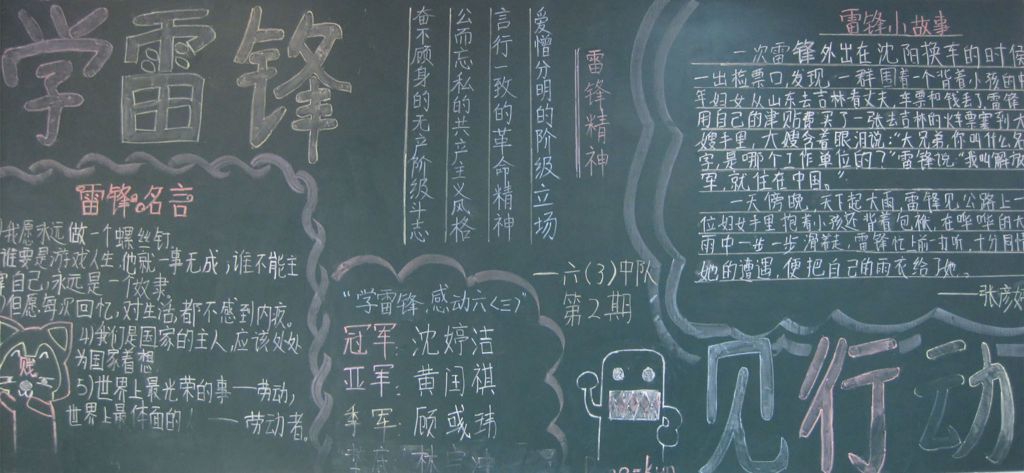 学雷锋
雷锋名言
我愿永远做一个螺丝钉
谁要是游戏人生,他就一事无成,谁不能主
自己,永远是一个
但愿每次回忆,对生活都不感到内疚。
4)我们是国家的主人,应该处处
为国家着想
5)世界上最光荣的事——劳动,
世界上最体面的人——劳动者。
雷锋精神
爱憎分明的阶级立场
言行一致的革命精神
公而忘私的共产主义风格
奋不顾身的无产阶级斗志
一六(3)中队
第2期
“学雷锋,感动六<三>”
冠军:沈婷洁
亚军:黄闰祺
季军:顾彧玮
雷锋小故事
一次雷锋外出在沈阳换车的时候
一出检票口,发现一群围着一个背着小孩的中
年妇女从山东去吉林看丈夫,车票和钱丢了雷锋
用自己的津贴费买了一张去吉林的火车票塞到大
嫂手里,大嫂含着眼泪说:“大兄弟,你叫什么名
字,是哪个工作单位的?”雷锋说:“我叫解放
军,就住在中国。”
一天傍晚,天下起大雨,雷锋见公路上一
位妇女手里抱着小孩还背着包袱,在哗哗的大
雨中一步一步滑着走,雷锋忙上前一打听,十分同情
她的遭遇,便把自己的雨衣给了她。
——张彦
见行动